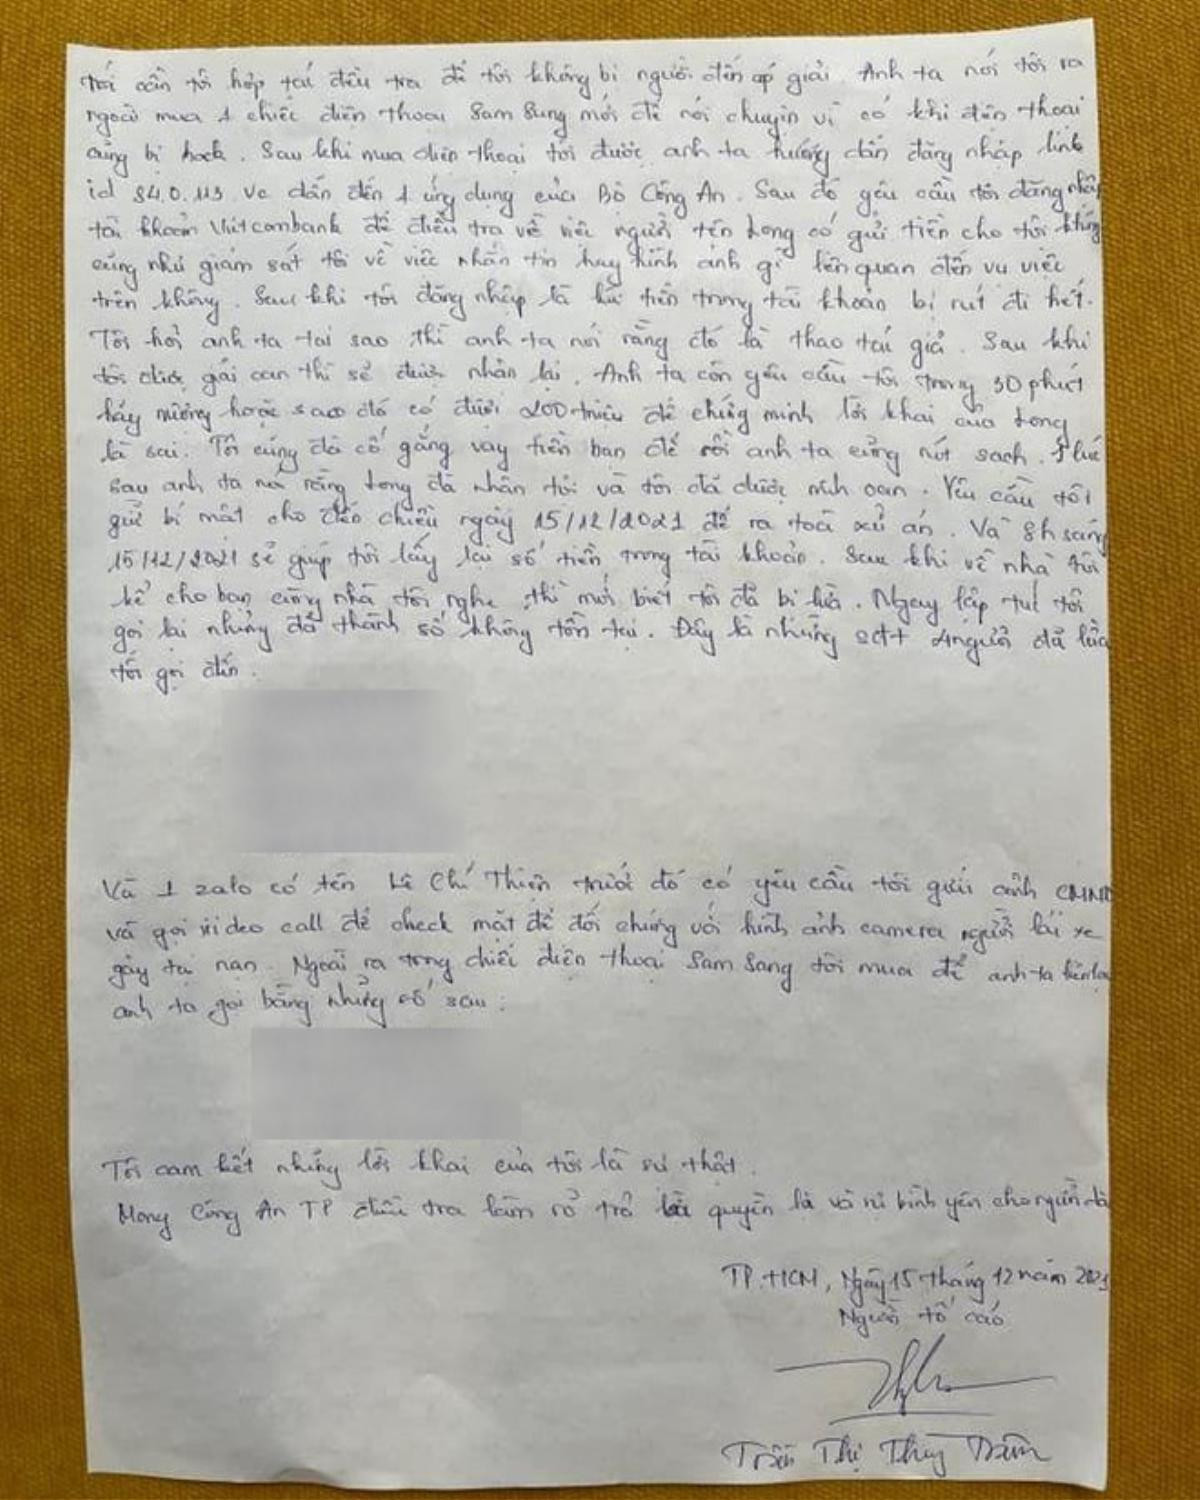 tôi cần tôi hợp tác điều tra để tôi không bị người đến áp giải. Anh ta nói tôi ra
ngoài mua 1 chiếc điện thoại Sam Sung mới để nói chuyện vì có khi điện thoại
cũng bị hack. Sau khi mua điện thoại tôi được anh ta hướng dẫn đăng nhập link
id 84.0.113 và dẫn đến 1 ứng dụng của Bộ Công An. Sau đó yêu cầu tôi đăng nhập
tài khoản Vietcombank để điều tra về việc người tên Long có gửi tiền cho tôi không
cũng như giám sát tôi về việc nhắn tin hay hình ảnh gì liên quan đến vụ việc
trên không. Sau khi tôi đăng nhập là lúc tiền trong tài khoản bị rút đi hết.
Tôi hỏi anh ta tại sao thì anh ta nói rằng đó là thao tác giả. Sau khi
tôi được giải oan thì sẽ được nhận lại. Anh ta còn yêu cầu tôi trong 30 phút
hãy mượn hoặc sao đó có được 200 triệu để chứng minh lời khai của Long
là sai. Tôi cũng đã cố gắng vay tiền bạn để rồi anh ta cũng rút sạch. 1 lúc
sau anh ta nói rằng Long đã nhận tội và tôi đã được minh oan. Yêu cầu tôi
giữ bí mật cho đến chiều ngày 15/12/2021 để ra toà xử án. Và 8h sáng
15/12/2021 sẽ giúp tôi lấy lại số tiền trong tài khoản. Sau khi về nhà tôi
kể cho bạn cùng nhà tôi nghe thì mới biết tôi đã bị lừa. Ngay lập tức tôi
gọi lại nhưng đã thành số không tồn tại. Đây là những sđt 4 người đã lừa
tôi gọi đến.
Và 1 zalo có tên Lê Chí Thiện trước đó có yêu cầu tôi gửi ảnh CMND
và gọi video call để check mặt để đối chứng với hình ảnh camera người lái xe
gây tai nạn. Ngoài ra trong chiếc điện thoại Sam Sang tôi mua để anh ta liên lạc
anh ta gọi bằng những số sau:
Tôi cam kết những lời khai của tôi là sự thật.
Mong Công An TP điều tra làm rõ trả lại quyền lợi và sự bình yên cho người dân
TP.HCM, Ngày 15 tháng 12 năm 2021
Người tố cáo
Trần Thị Thùy